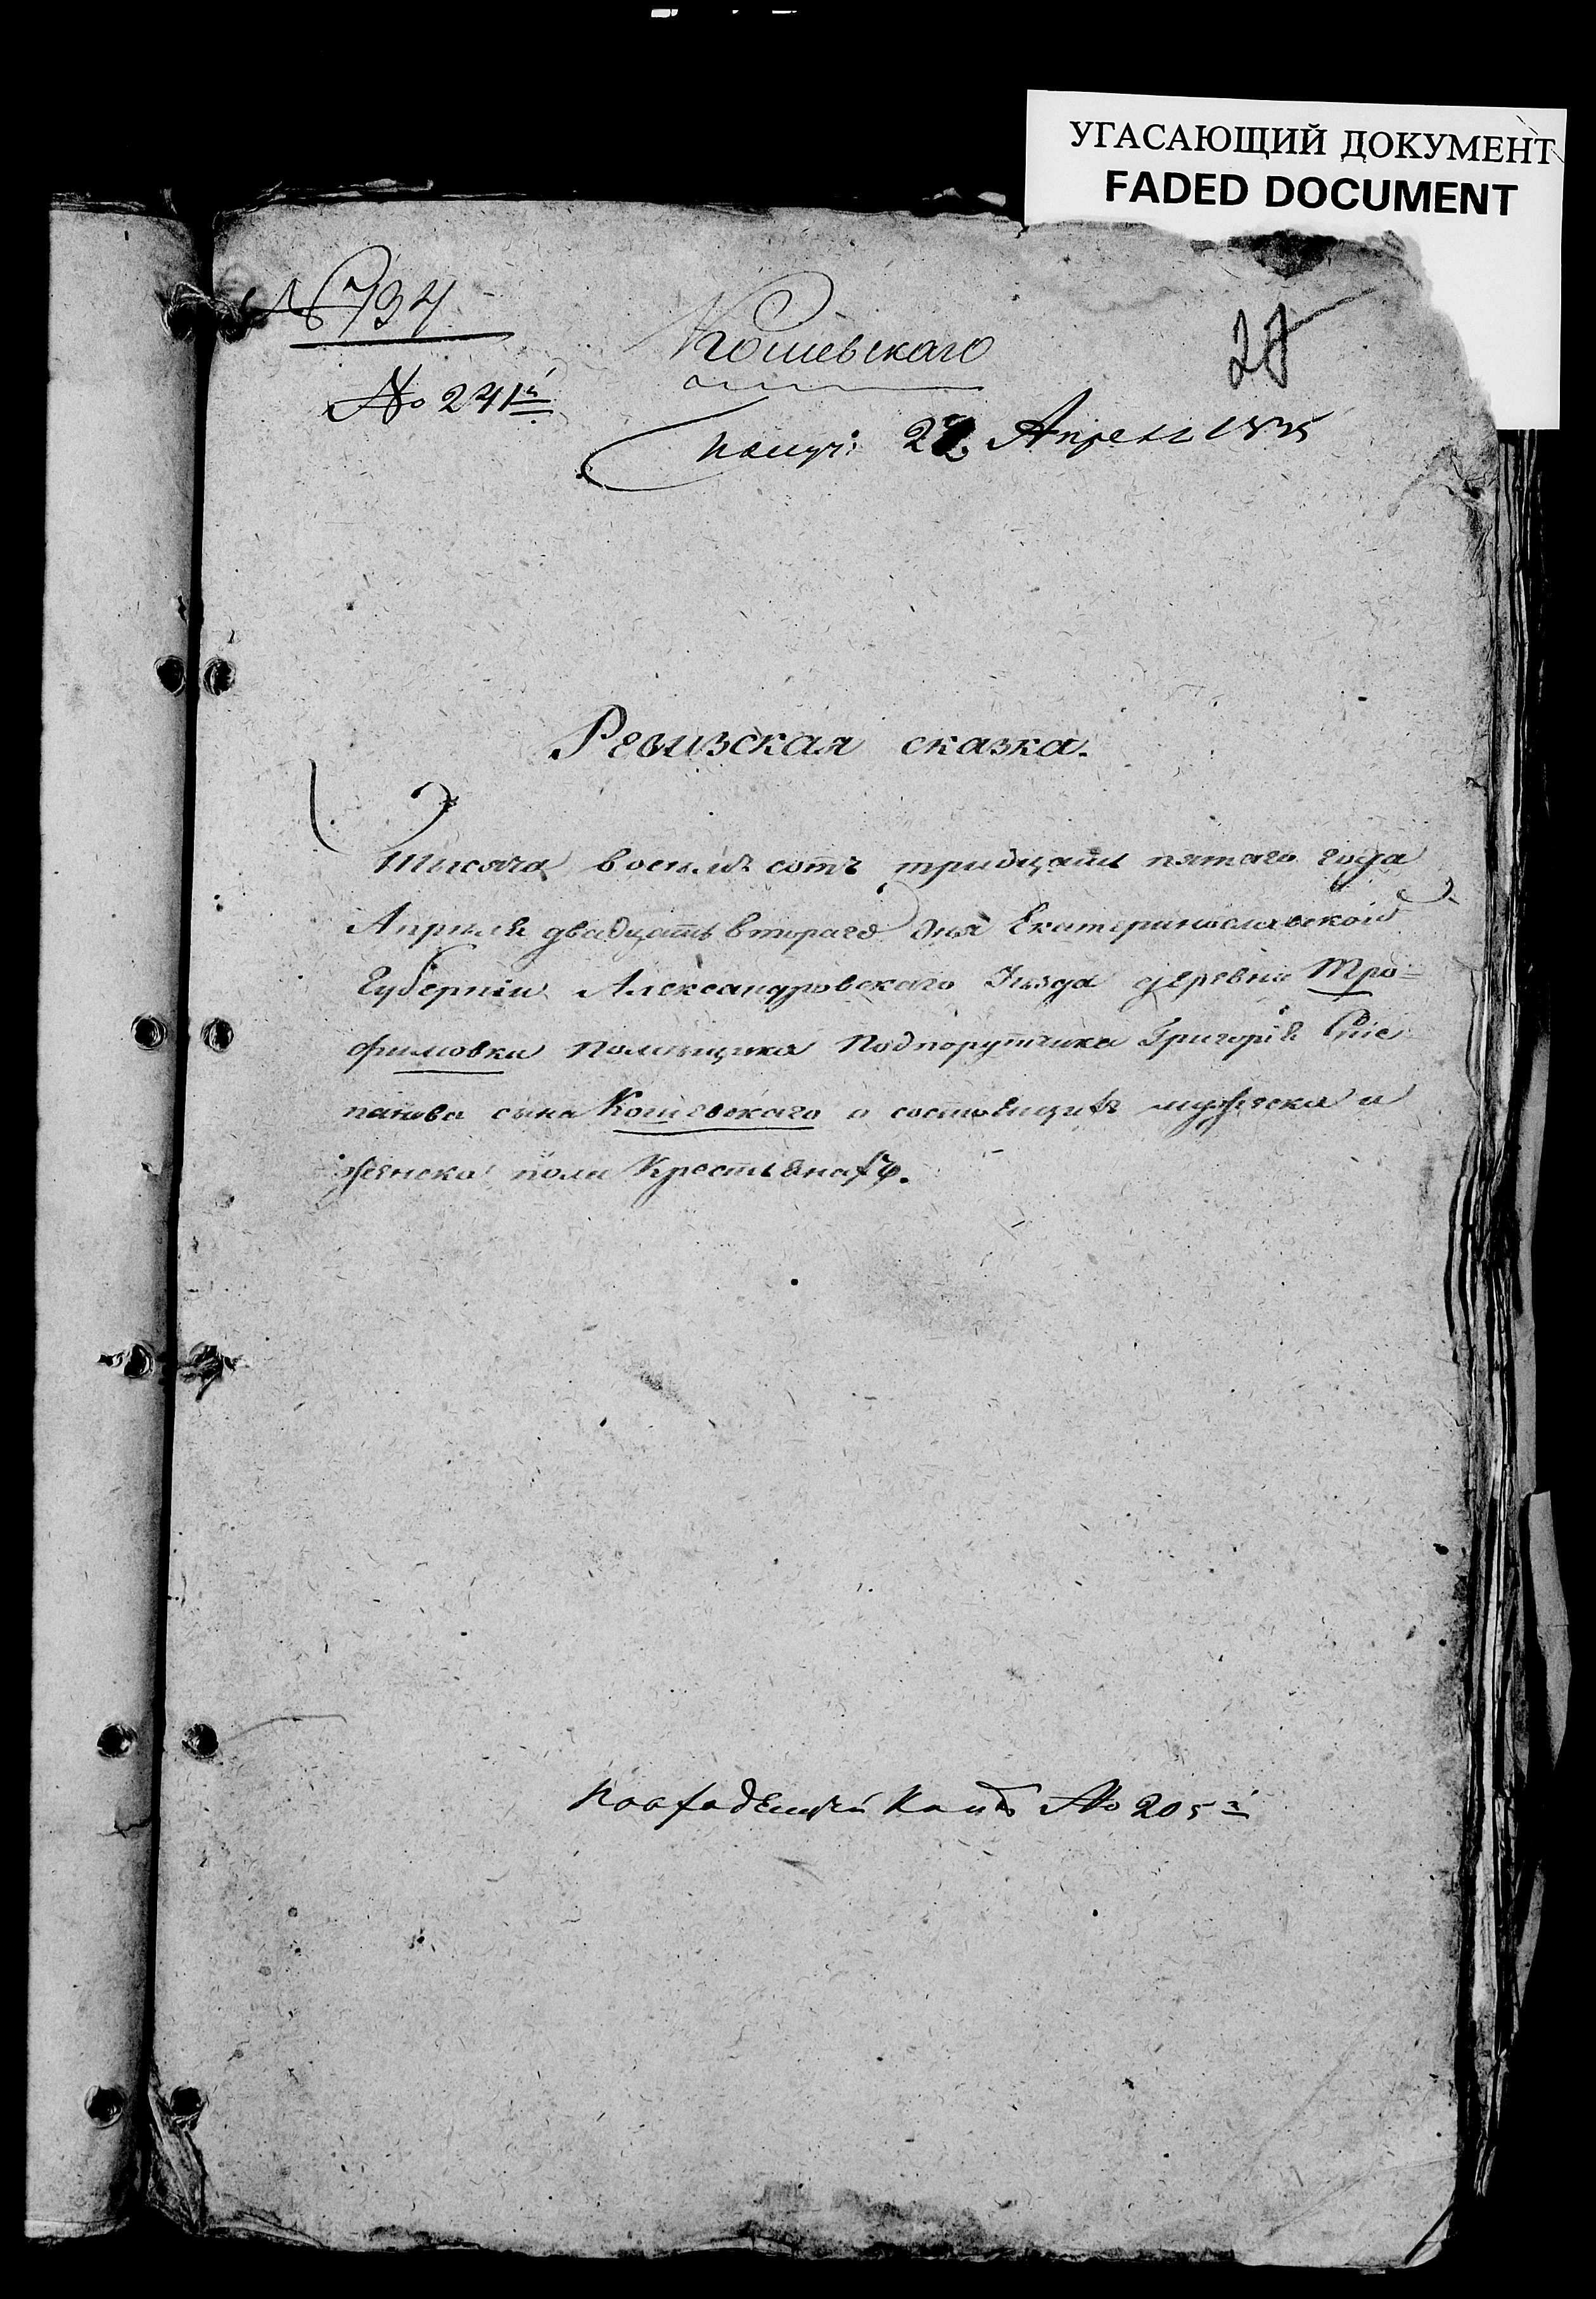 УГАСАЮЩИЙ ДОКУМЕНТ
FADED DOCUMENT
№ 734
28
Кошевскаго
№ 241й
получ: 22 Апреля 1835
Ревизская сказка.
Тысяча восемь сотъ тридцать пятаго года
Апреля двадцать втораго дня Екатеринославской
Губерніи Александровскаго Уезда деревни Тро=
фимовки Помещика Подпорутчика Григорія Сте
панова сына Кошевскаго о состоящихъ мужеска и
женска пола Крестьянахъ.
№ 205й